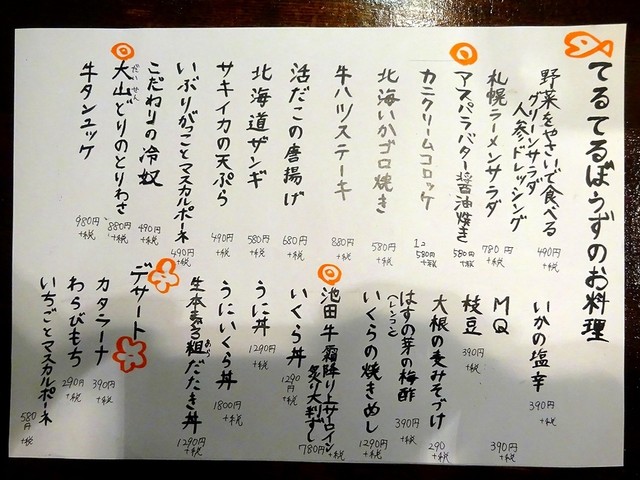 てるてるぼうずのお料理
野菜をやさいで食べる
グリーンサラダ
人参ドレッシング
490円
+税
札幌ラーメンサラダ
780円
+税
アスパラバター醤油焼き
580円
+税
カニクリームコロッケ
1コ
580円
+税
北海いかゴロ焼き
580円
+税
牛ハツステーキ
880円
+税
活だこの唐揚げ
680円
+税
北海道ザンギ
580円
+税
サキイカの天ぷら
490円
+税
いぶりがっことマスカルポーネ
490円
+税
こだわりの冷奴
490円
+税
大山どりのとりわさ
だいせん
880円
+税
牛タンユッケ
980円
+税
いかの塩辛
390円
+税
MQ
390円
+税
枝豆
390円
+税
大根の麦みそづけ
290
+税
はすの芽の梅酢
(レンコン)
390円
+税
いくらの焼きめし
1290円
+税
池田牛霜降りサーロイン
炙り大判ずし
780円
+税
いくら丼
1290円
+税
うに丼
1290円
+税
うにいくら丼
1800円
+税
生本まぐろ粗だたき丼
あら
1290円
+税
デザート
カタラーナ
390円
+税
わらびもち
290円
+税
いちごとマスカルポーネ
580円
+税